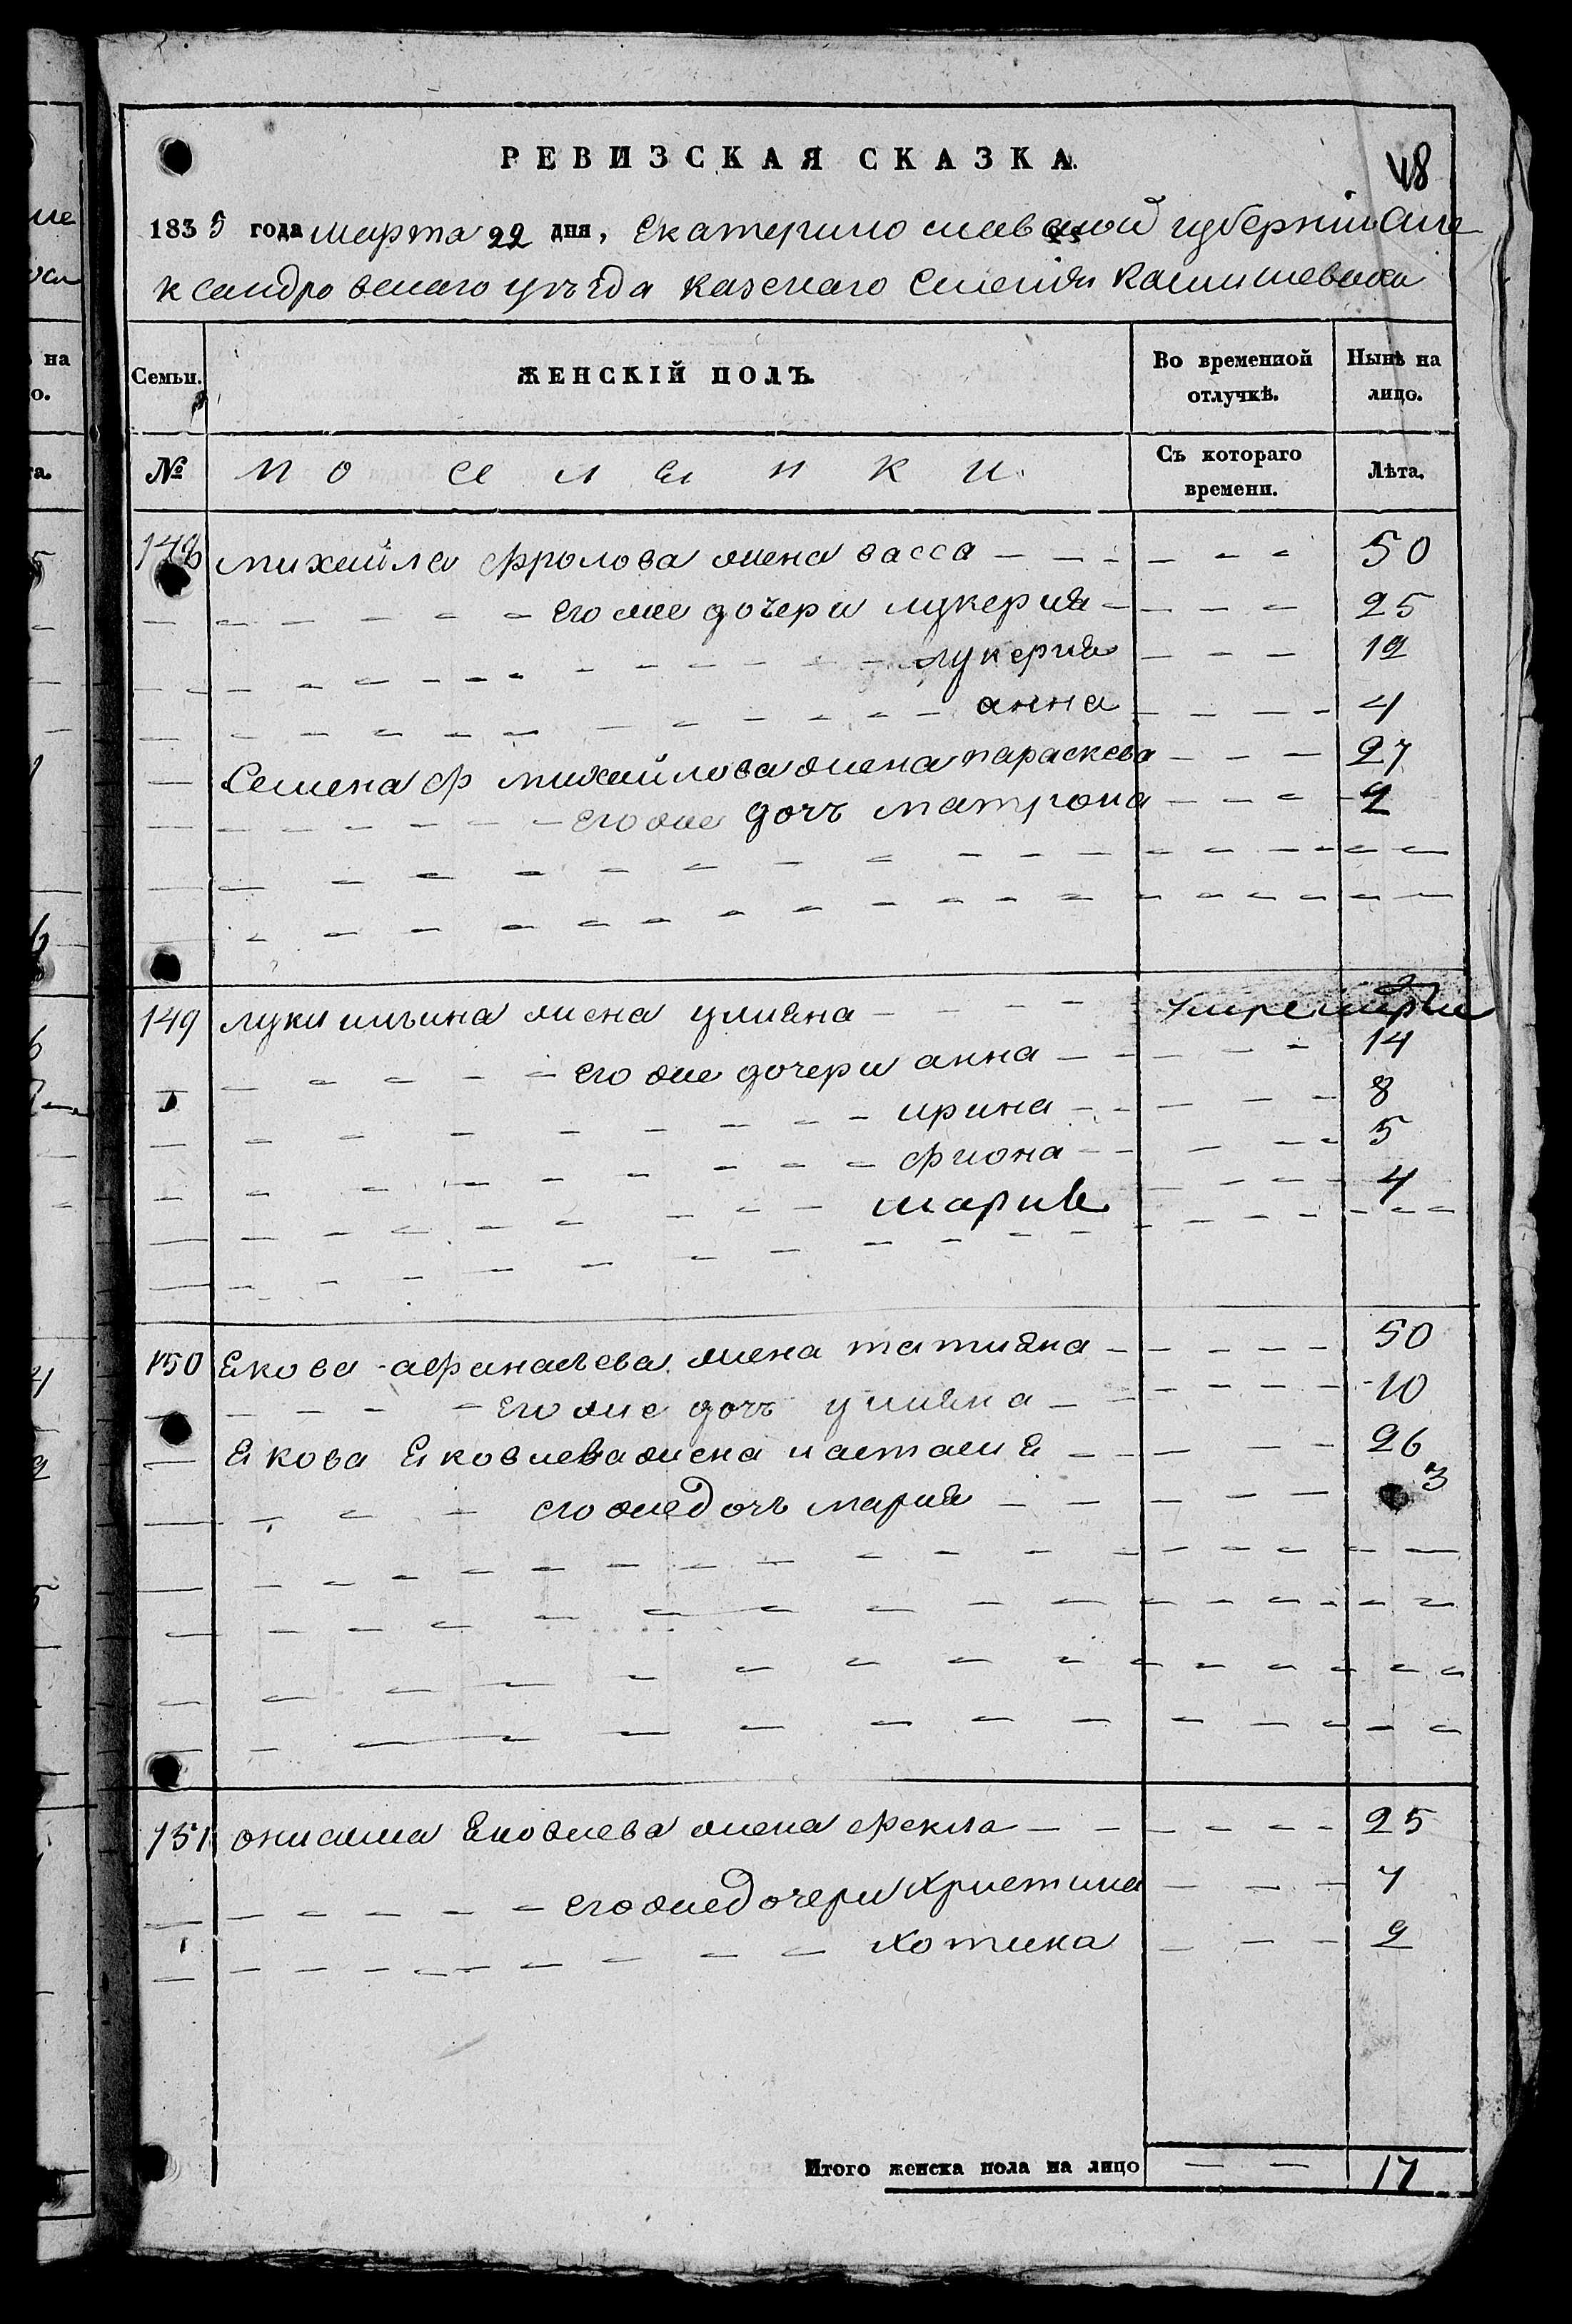 РЕВИЗСКАЯ СКАЗКА.
48
1835 года марта 22 дня, Екатеринославской губернии Але
ксандровскаго уъзда казенаго Селения
Семьи.
ЖЕНСКІЙ ПОЛЪ.
Во временной отлучкѣ.
Нынѣ на лицо.
№
поселянки
Съ котораго времени.
Лѣта.
148 михайла фролова жена васса 50
его же дочери лукерия 25
лукерия 12
анна 4
Семена ф михайлова жена параскева 27
его же дочъ матрона 2
149 луки ильина жена улияна
его же дочери анна 14
ирина 8
фиона 5
мария 4
150 Якова афанасьева жена татияна 50
его же дочъ улияна 10
Якова Яковлева жена настасия 26
его же дочъ мария 3
151 онисима Яковлева жена фекла 25
его же дочери христина 7
хотина 2
Итого женска пола на лицо 17